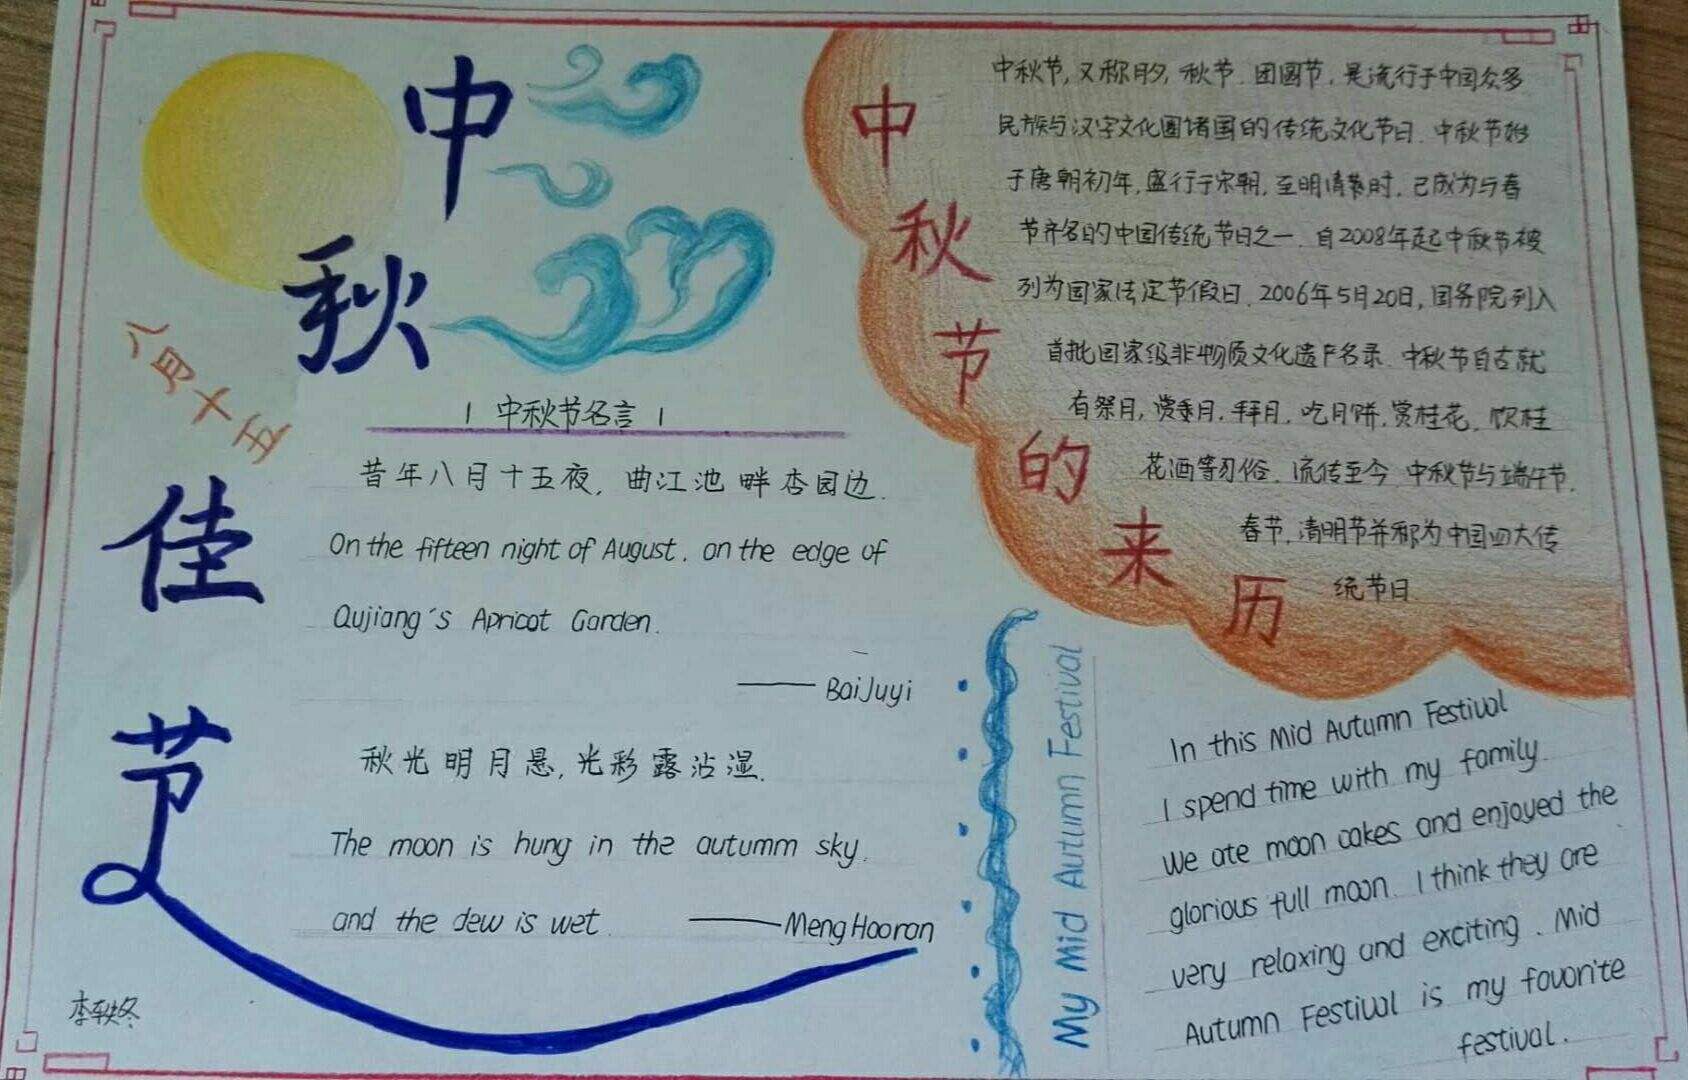 中
秋
佳
节
八月十五
中秋节名言
昔年八月十五夜,曲江池畔杏园边.
On the fifteen night of August. on the edge of
Qujiang's Apricot Garden.
—— BaiJuyi
秋光明月悬,光彩露沾湿.
The moon is hung in the autumm sky.
and the dew is wet.
—— Meng Haoran
李秋冬
中
秋
节
的
来
历
中秋节,又称月夕,秋节.团圆节.是流行于中国众多
民族与汉字文化圈诸国的传统文化节日.中秋节始
于唐朝初年,盛行于宋朝,至明清时,已成为与春
节齐名的中国传统节日之一.自2008年起中秋节被
列为国家法定节假日.2006年5月20日,国务院列入
首批国家级非物质文化遗产名录.中秋节自古就
有祭月,赏月.拜月.吃月饼.赏桂花,饮桂
花酒等习俗.流传至今.中秋节与端午节.
春节,清明节并称为中国四大传
统节日.
My Mid Autumn Festival
In this Mid Autumn Festival
I spend time with my family.
We ate moon cakes and enjoyed the
glorious full moon. I think they are
very relaxing and exciting. Mid
Autumn Festival is my favorite
festival.